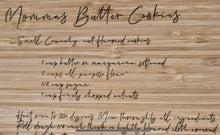 Mommas Butter Cookies
Small County nut flavored cookies
1 cup butter or margarine softened
2 cups all purpose flour
1/2 cup sugar
1 cup finely chopped walnuts
Heat oven to 350 degrees. Mix thoroughly all ingredients
Roll dough 1/4 inch thick on lightly floured cloth covered